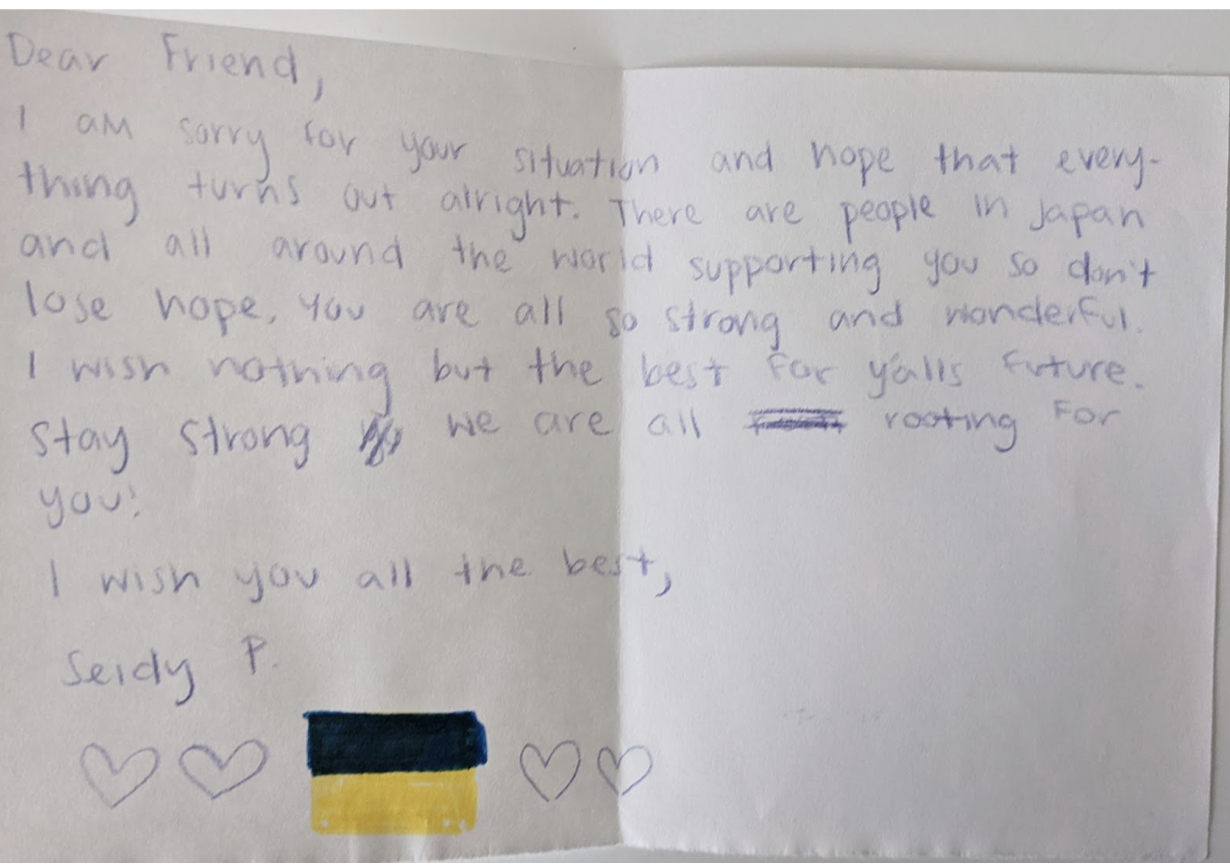 Dear Friend,
I am sorry for your situation and hope that every-
thing turns out alright. There are people in Japan
and all around the world supporting you so don't
lose hope. You are all so strong and wonderful.
I wish nothing but the best for y'alls future.
Stay strong we are all rooting for
you!
I wish you all the best,
Seidy P.